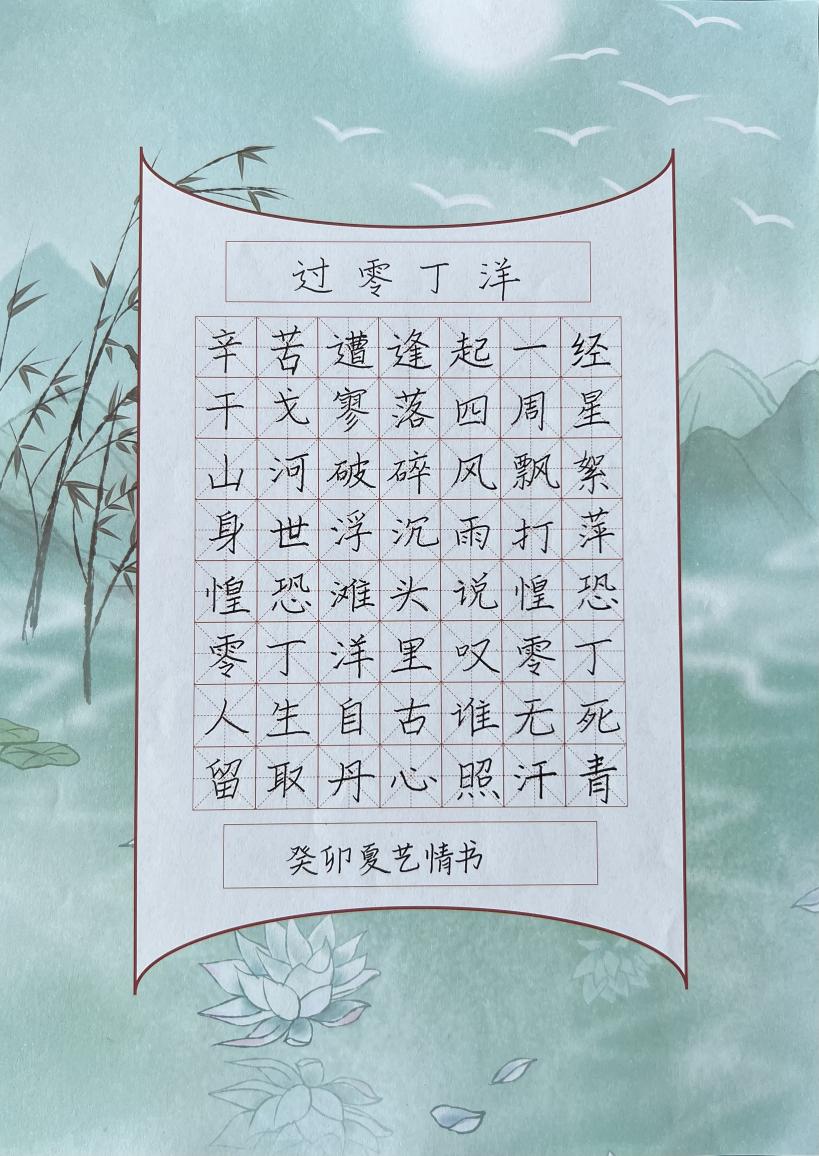 过零丁洋
辛苦遭逢起一经
干戈寥落四周星
山河破碎风飘絮
身世浮沉雨打萍
惶恐滩头说惶恐
零丁洋里叹零丁
人生自古谁无死
留取丹心照汗青
癸卯夏艺情书